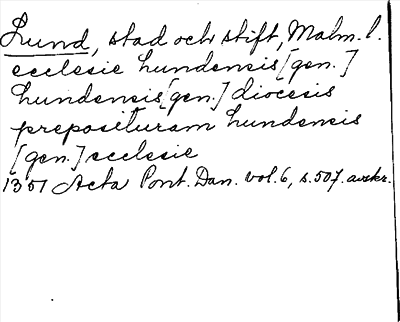 Lund, stad och stift, Malm. l.
ecclesie lundensis [gen.]
lundensis [gen.] diocesis
preposituram lundensis
[gen.] ecclesie
1351 Acta Pont. Dan. vol. 6, s. 507. avskr.